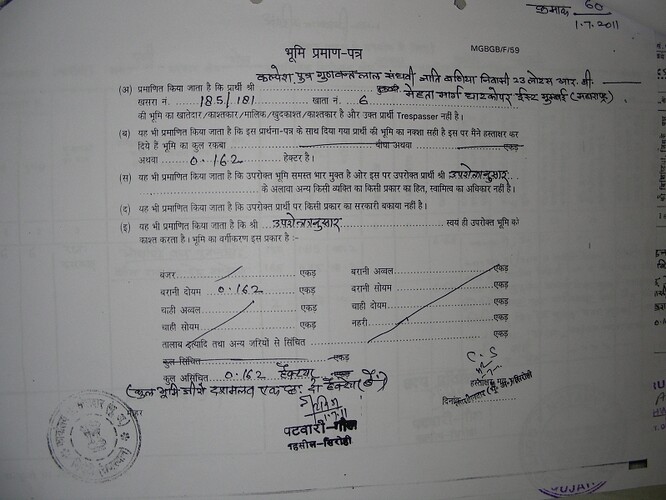 क्रमांक 60
1.7.2011
भूमि प्रमाण-पत्र
MGBGB/F/59
कल्पेश पुत्र गुणवन्तलाल संघवी जाति बणिया निवासी 23 लोटस आर.बी.
(अ) प्रमाणित किया जाता है कि प्रार्थी श्री
मेहता मार्ग घाटकोपर ईस्ट मुम्बई (महाराष्ट्र)
खसरा नं. 185/181 खाता नं. 6
की भूमि का खातेदार/काश्तकार/मालिक/खुदकाश्त/काश्तकार है और उक्त प्रार्थी Trespasser नही है।
(ब) यह भी प्रमाणित किया जाता है कि इस प्रार्थना-पत्र के साथ दिया गया प्रार्थी की भूमि का नक्शा सही है इस पर मैने हस्ताक्षर कर
दिये हैं भूमि का कुल रकबा बीघा अथवा एकड़
अथवा 0.162 हेक्टर है।
(स) यह भी प्रमाणित किया जाता है कि उपरोक्त भूमि समस्त भार मुक्त है ओर इस पर उपरोक्त प्रार्थी श्री उपरोक्तानुसार
के अलावा अन्य किसी व्यक्ति का किसी प्रकार का हित, स्वामित्व का अधिकार नहीं है।
(द) यह भी प्रमाणित किया जाता है कि उपरोक्त प्रार्थी पर किसी प्रकार का सरकारी बकाया नही है।
(इ) यह भी प्रमाणित किया जाता है कि श्री उपरोक्तानुसार स्वयं ही उपरोक्त भूमि को
काश्त करता है। भूमि का वर्गीकरण इस प्रकार है :-
बंजर एकड़ बरानी अव्वल एकड़
बरानी दोयम 0.162 एकड़ बरानी सोयम एकड़
चाही अव्वल एकड़ चाही दोयम एकड़
चाही सोयम एकड़ नहरी एकड़
तालाब इत्यादि तथा अन्य जरियों से सिंचित एकड़
कुल सिंचित एकड़
कुल असिंचित 0.162 हैक्टयर
(कुल भूमि शून्य दशमलव एक छः दो हैक्टयर है)
मोहर
हस्ताक्षर
दिनांक
पटवारी-गोल
तहसील-सिरोही
GUJAR